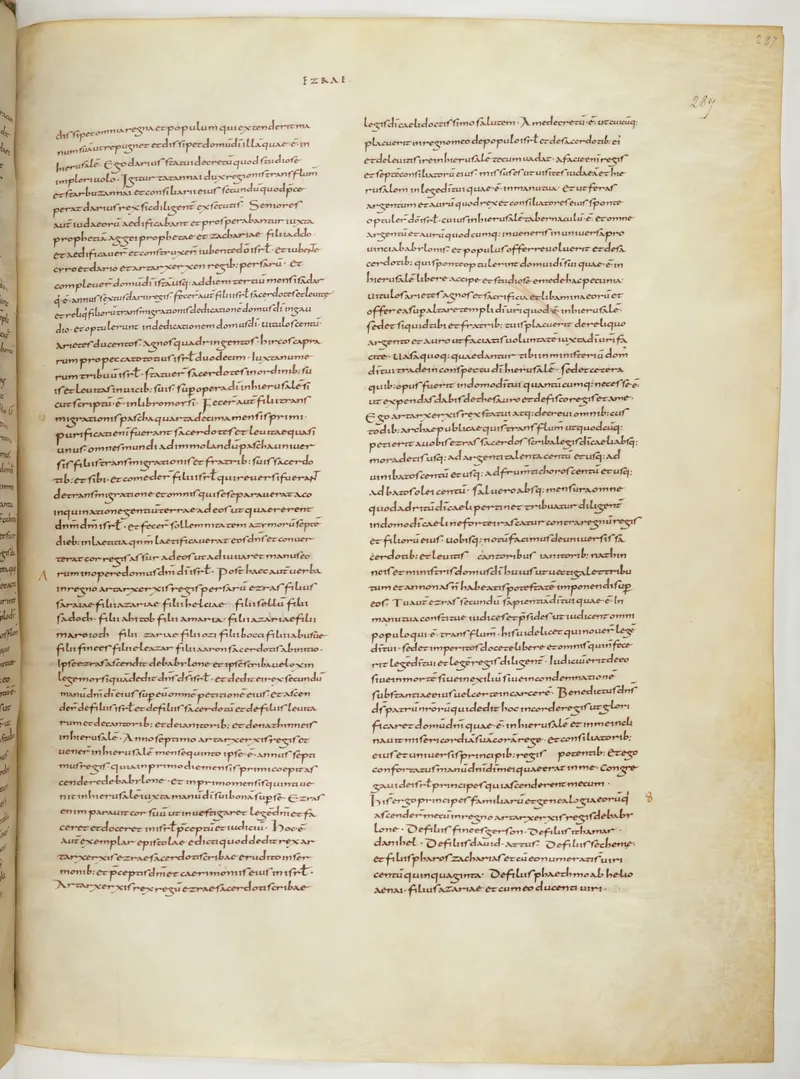 EZRAE
287
289
dissipet omnia regna et populum qui extenderit ma
num suā ut repugnet et dissipet domū dī illā quae ē in
hierusalē · Ego darius statui decretū quod studiose
impleri uolo · Igitur tatannai dux regionis trans flum
et starbuzannai et consiliarii eius secundū quod pce
perat darius rex sic diligent executi s̄ · Seniores
aut iudaeorū aedificabant et prosperabantur iuxta
prophetiā aggei prophetae et zachariae filii addo ·
et aedificauer et construxer iubente dō isrł · et iubente
cyro et dario et artarxerxe regib: persarū · Et
compleuer domū dī istā usq: ad diem tertiū mensis adar
q ē annus sextus darii regis · fecer aut filii isrł sacerdotes et leuitae
et reliq filiorū transmigrationis dedicationē domus dī in gau
dio · et optulerunt in dedicationem domus dī · uitulos centū
arietes ducentos · agnos quadringentos hircos capra
rum pro peccato totius isrł duodecim · Iuxta nume
rum tribuū isrł · statuer sacerdotes in ordinib: su
is et leuitas in uicib: suis · sup opera dī in hierusalē si
cut scriptū ē in libro morsi · Fecer aut filii trans
migrationis pascha quarta decima mensis primi ·
purificati enī fuerant sacerdotes et leuitae quasi
unus · omnes mundi ad immolandū pascha uniuer
sis filiis transmigrationis et fratrib: suis sacerdo
tib: et sibi · et comeder filii isrł qui reuersi fuerant
de transmigratione et omnis qui se separauerat a co
inquinatione gentiū terrae ad eos ut quaererent
dnm dm isrł · et fecer sollemnitatem azymorū septe
dieb: in laetitia qnm laetificauerat eos dns et conuer
terat cor regis assur ad eos ut adiuuaret manus eo
rum in opere domus dm dī isrł · Post haec aut uerba
in regno artarxerxis regis persarū ezras filius
saraiae filii azariae filii helciae filii sellū filii
sadoch · filii ahitob filii amaria · filii azariae filii
maroioth filii zariae filii ozi filii bocci filii abisue
filii finees filii eleazar filii aaron sacerdotis ab initio ·
Ipse ezras ascendit de babylone et ipse scriba uelox in
lege morsi quā dedit dns ds isrł · et dedit ei rex secundū
manū dm dī eius sup eū omnē petitionē eius · et ascen
der de filiis isrł et de filiis sacerdotū et de filiis leuita
rum et de cantorib: et de ianitorib: et de nathinneis
in hierusalē · Anno septimo artarxerxis regis et
uener in hierusalē mense quinto ipse ē annus septi
mus regis quia in primo die mensis primi coepit as
cendere de babylone · et in primo mensis quinti ue
nit in hierusalē iuxta manū dī sui bonā sup se · Ezras
enim parauit cor suū ut inuestigaret legē dm et fa
ceret et doceret in isrł pceptū et iudiciū · Hoc ē
aut exemplar epistolae edicti quod dedit rex ar
tarxerxis ezrae sacerdoti scribae erudito in ser
monib: et pceptis dm et caerimoniis eius in isrł ·
Artarxerxis rex regū ezrae sacerdoti scribae
legis dī caeli doctissimo salutem · A me decretū ē ut cuicūq:
placuerit in regno meo de populo isrł et de sacerdotib: ei
et de leuitis ire in hierusalē tecum uadat · a facie enī regis
et septē consiliatorū eius missus es ut uisites iudaeā et hie
rusalem in lege dī tui quae ē in manu tua · Et ut feras
argentum et aurū quod rex et consiliatores eius sponte
optuler dō isrł · cuius in hierusalē tabernaculū ē · et omne
argentū et aurū quodcumq: inueneris in uniuersa pro
uincia babylonis · et populus offerre uoluerit et de sa
cerdotib: qui sponte optulerint domui dī sui quae ē in
hierusalē libere accipe et studiose eme de hac pecunia ·
uitulos arietes agnos et sacrificia et libamina eorū et
offer ea sup altare templi dī uri quod ē in hierusalē ·
sed et siquid tibi et fratrib: tuis placuerit de reliquo
argento et auro ut faciatis uoluntatē iuxta dī uri fa
cite · Uasa quoq: quae dantur tibi in ministeriū dom
dī tui trade in conspectu dī hierusalē · sed et cetera
quib: opus fuerit in domo dī tui quantūcumq: necesse ē
ut expendas dabis de thesauro et de fisco regis et a me ·
Ego artarxerxis rex statui atq: decreui omnib: cus
todib: archae publicae qui s̄ trans flum ut quodcūq:
petierit a uobis ezras sacerdos scriba legis dī caeli absq:
mora detis usq: ad argenti talenta centū et usq: ad
uini batos centū et usq: ad frumti choros centū et usq:
ad batos olei centū · sal uero absq: mensura omne
quod ad ritū dī caeli pertinet tribuatur diligent
in domo dī caeli ne forte irascatur contra regnū regis
et filiorū eius · uobisq: notū facimus de uniuersis sa
cerdotib: et leuitis cantoribus ianitorib: nathin
neis et ministris domus dī huius ut uectigal et tribu
tum et annonas n̄ habeatis potestatē imponendi sup
eos · Tu aut ezras secundū sapientiā dī tui quae ē in
manu tua constitue iudices et psides ut iudicent omni
populo qui ē trans flum · his uidelicet qui nouer legē
dī tui · sed et imperitos docete libere et omnis qui n̄ fece
rit legē dī tui et legē regis diligent · Iudiciū erit de eo
siue in mortē siue in exiliū siue in condemnationē
substantiae eius uel certe in carcerē · Benedictus dns
ds patrū nrorū qui dedit hoc in corde regis ut glori
ficaret domū dm quae ē in hierusalē et in me incli
nauit misericordiā suā corā rege · et consiliatorib:
eius et uniuersis principib: regis potentib: et ego
confortatus manū dm dī mei quae erat in me · Congre
gaui de isrł principes qui ascenderent mecum ·
Hi s̄ ergo principes familiarū et genealogia eorū q
ascender mecū in regno artarxerxis regis de baby
lone · De filiis finees gerson · De filiis ithamar ·
danihel · De filiis dauid · attus · De filiis secheniae
et filiis pharos zacharias et cū eo numerati s̄ uiri
centū quinquaginta · De filiis phaeth moab helio
aenai · filius azariae et cum eo ducenti uiri ·